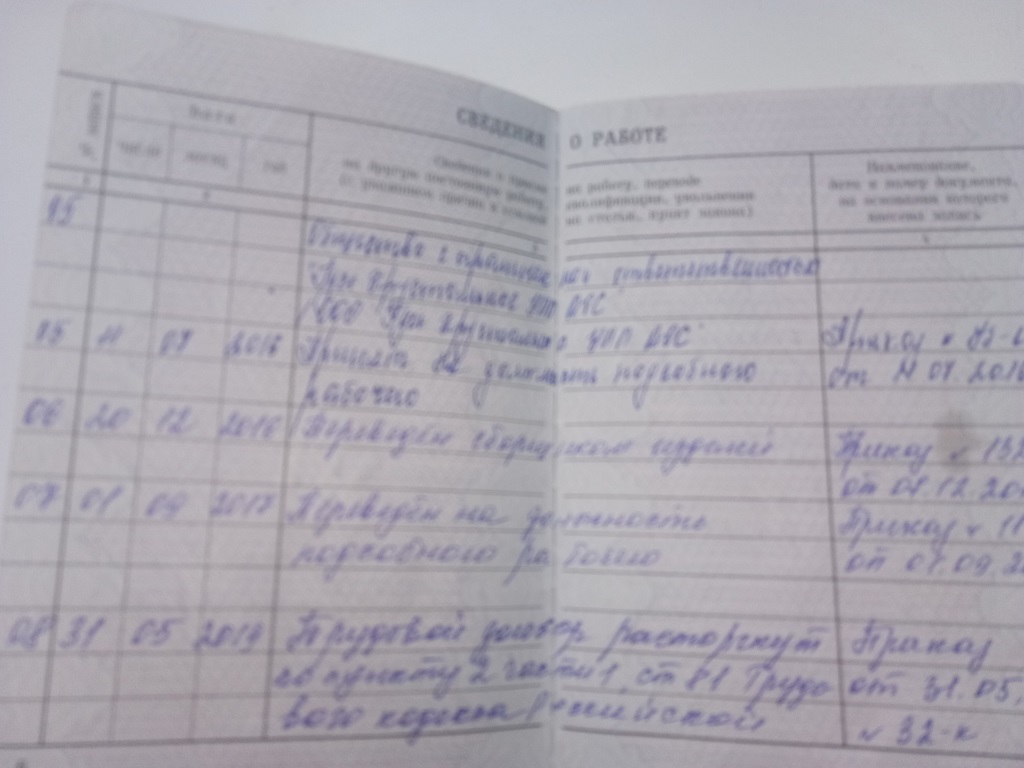 СВЕДЕНИЯ О РАБОТЕ
№ записи
Дата
число месяц год
Сведения о приеме на работу, переводе
на другую постоянную работу, квалификации, увольнении
(с указанием причин и на статью, пункт закона)
Наименование,
дата и номер документа,
на основании которого
внесена запись
1 2 3 4
Общество с ограниченной ответственностью
05 11 07 2016 Принят на должность подсобного Приказ №
рабочего от 11.07.2016
06 20 12 2016 Переведён сборщиком изделий Приказ № 132
от 01.12.20
07 01 09 2017 Переведён на должность Приказ № 11
подсобного рабочего от 01.09.2
08 31 05 2019 Трудовой договор расторгнут Приказ
по пункту 2 части 1, ст 81 Трудо от 31.05.
вого кодекса Российской № 32-к